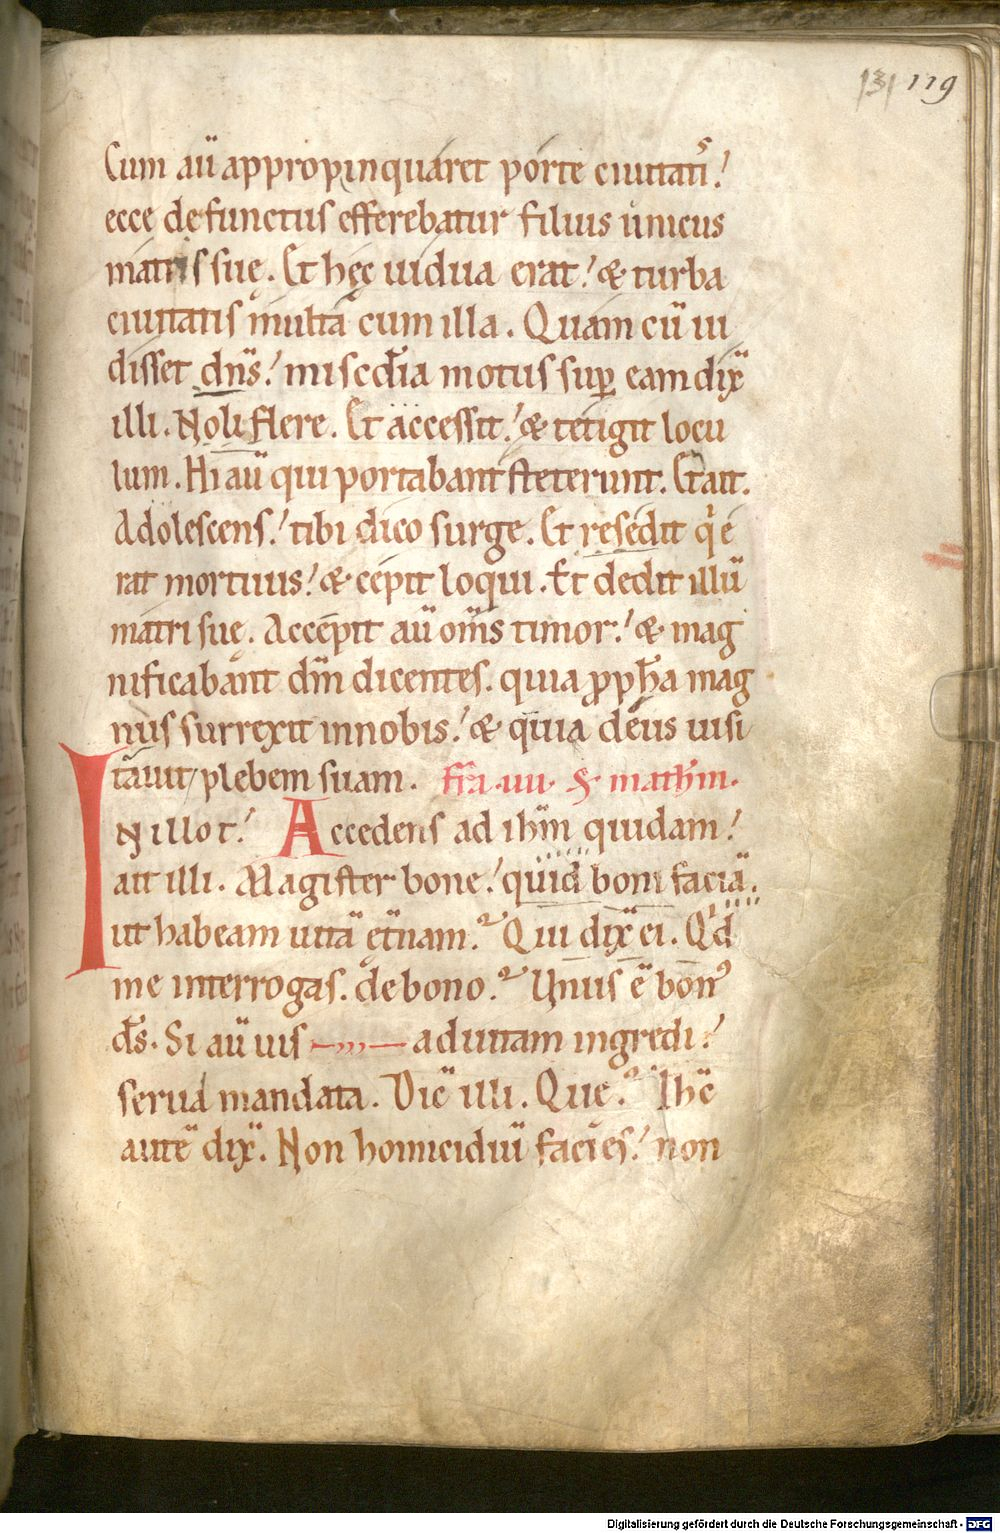 131 119
Cum aū appropinquaret porte ciuitatiſ.
ecce defunctuſ efferebatur filiuſ unicus
matriſ ſuę. Et hęc uidua erat. & turba
ciuitatiſ multa cum illa. Quam cū ui
diſſet dn̄s. miſcd̄ia motuſ ſuꝑ eam dix̄
illi. Noli flere. Et acceſſit. & tetigit locu
lum. Hi aū qui portabant ſteterunt. Et ait.
Adoleſcenſ. tibi dico ſurge. Et reſedit q̇ e
rat mortuuſ. & cepit loqui. Et dedit illū
matri ſuę. Accepit aū om̄s timor. & mag
nificabant dm̄ dicenteſ. quia ꝓpħa mag
nuſ ſurrexit in nobiſ. & quia deuſ uiſi
tauit plebem ſuam. fr̄a .uii. S. math̄m.
IN illo t. Accedenſ ad ih̄m quidam.
ait illi. Magiſter bone. quid boni faciā.
ut habeam uitā ęt̄nam. Qui dix̄ ei. Qd̓
me interrogaſ. de bono. Unuſ ē bonꝰ
dſ̄. Si aū uiſ ad uitam ingredi.
ſerua mandata. Dic̄ illi. Que. Ihc̄
autē dix̄. Non homicidiū facieſ. non
Digitalisierung gefördert durch die Deutsche Forschungsgemeinschaft - DFG